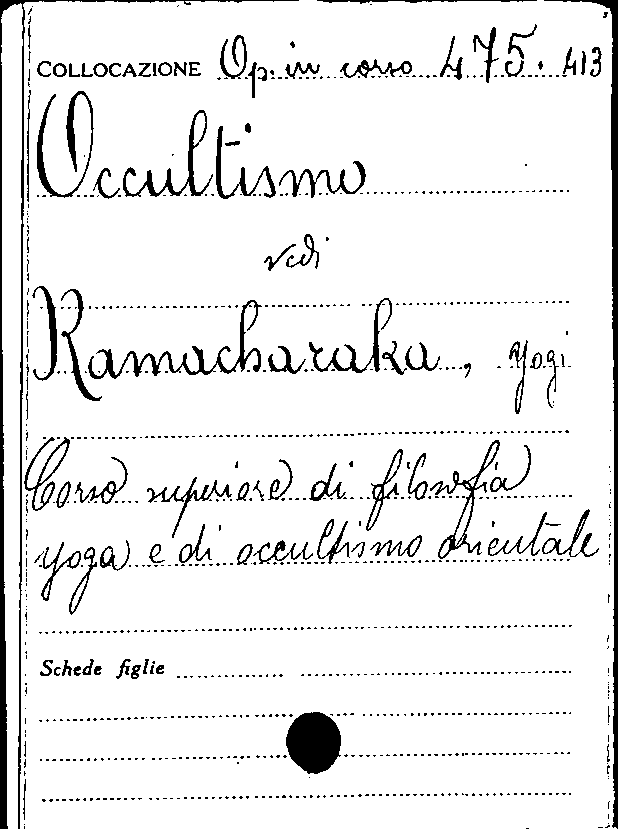 COLLOCAZIONE Op. in corso 475. 413
Occultismo
vedi
Ramacharaka, yogi
Corso superiore di filosofia
yoga e di occultismo orientale
Schede figlie